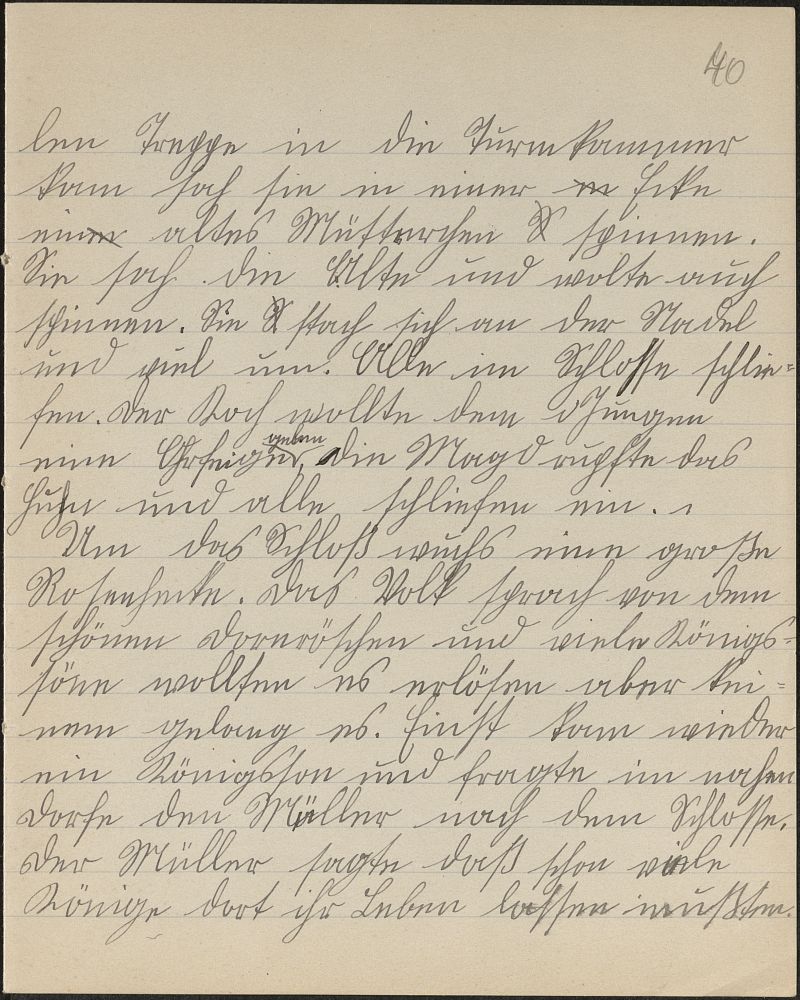 40
len Treppe in die Turmkammer
kam sah sie in einer Ecke
ein altes Mütterchen spinnen.
Sie sah die Alte und wolte auch
spinnen. Sie stach sich an der Nadel
und viel um. Alle im Schlosse schlie=
fen. Der Koch wollte dem Jungen
geben
eine Ohrfeige, die Magd rupfte das
Huhn und alle schliefen ein.
Um das Schloß wuchs eine große
Rosenhecke. Das Volk sprach von dem
schönen Dornröschen und viele Königs=
söne wollten es erlösen aber kei=
nem gelang es. Einst kam wieder
ein Königsson und fragte im nahen
Dorfe den Müller nach dem Schlosse.
Der Müller sagte daß schon viele
Könige dort ihr Leben lassen mußten.